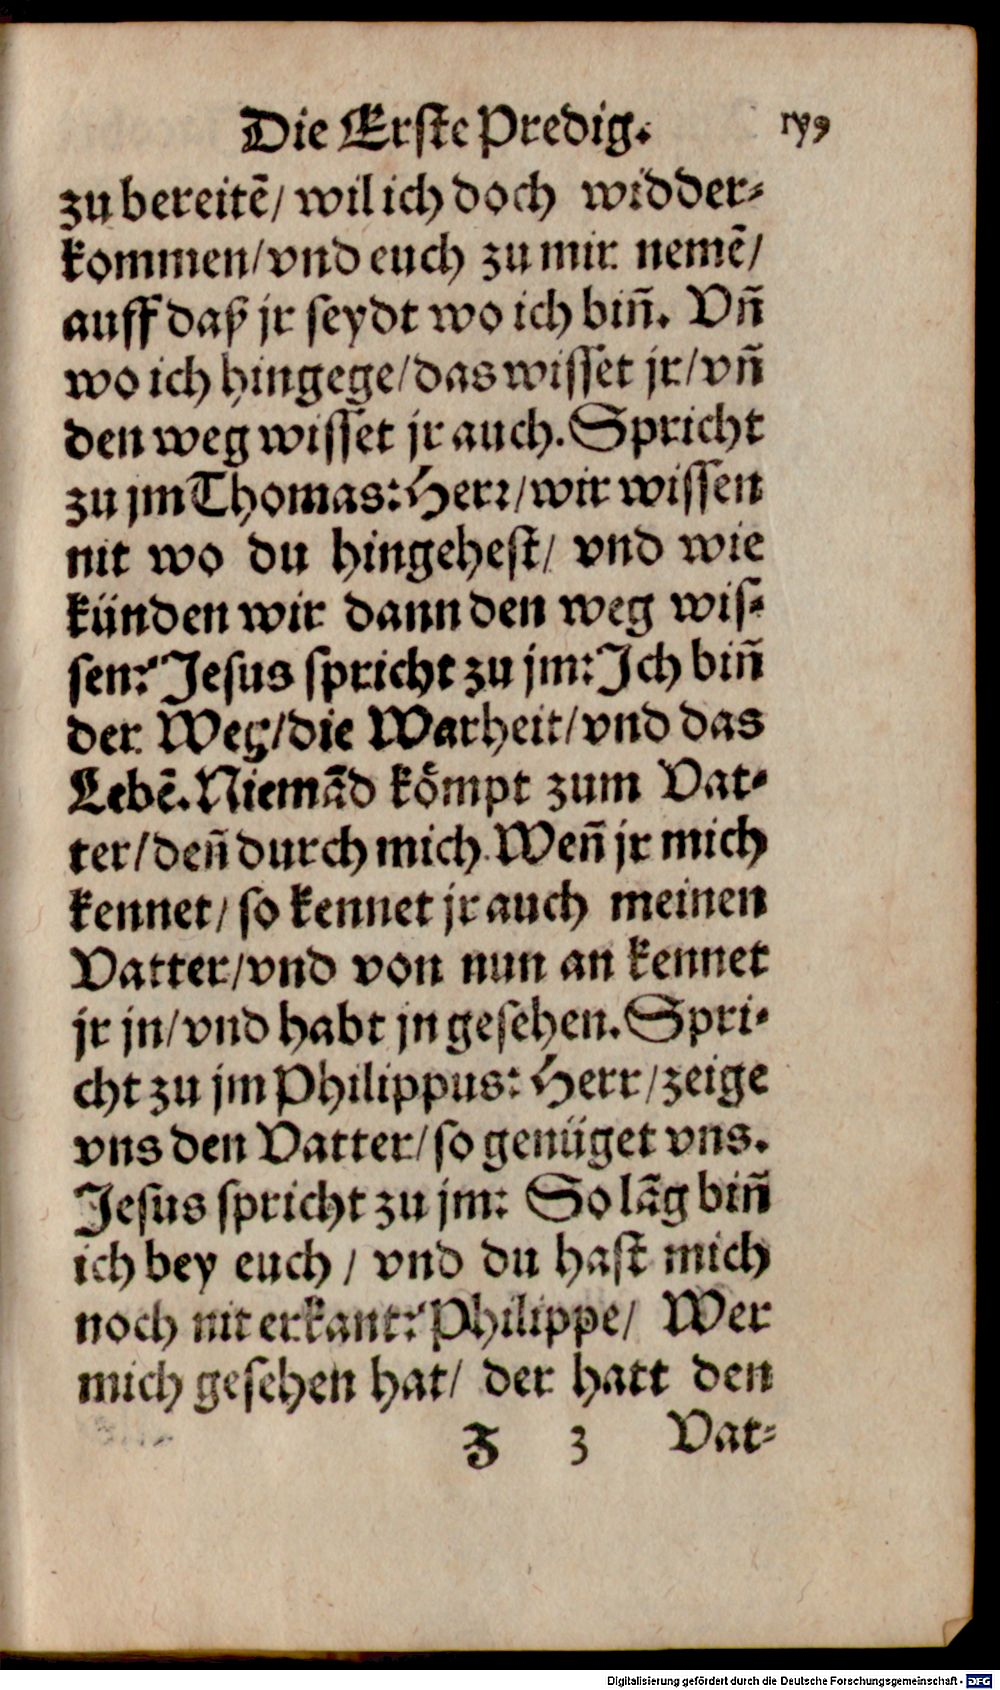 Die Erste Predig. 179
zu bereitē/ wil ich doch widder⸗
kommen/vnd euch zu mir nemē/
auff daß jr seydt wo ich biñ. Vñ
wo ich hingege/das wisset jr/vñ
den weg wisset jr auch. Spricht
zu jm Thomas: Herr/wir wissen
nit wo du hingehest/ vnd wie
künden wir dann den weg wis⸗
sen? Jesus spricht zu jm: Ich biñ
der Weg/die Warheit/vnd das
Lebē. Niemād kömpt zum Vat⸗
ter/deñ durch mich. Weñ jr mich
kennet/ so kennet jr auch meinen
Vatter/vnd von nun an kennet
jr jn/vnd habt jn gesehen. Spri⸗
cht zu jm Philippus: Herr/zeige
vns den Vatter/so genüget vns.
Jesus spricht zu jm: So lāg biñ
ich bey euch/ vnd du hast mich
noch nit erkant? Philippe/ Wer
mich gesehen hat/ der hatt den
Z 3 Vat⸗
Digitalisierung gefördert durch die Deutsche Forschungsgemeinschaft - DFG